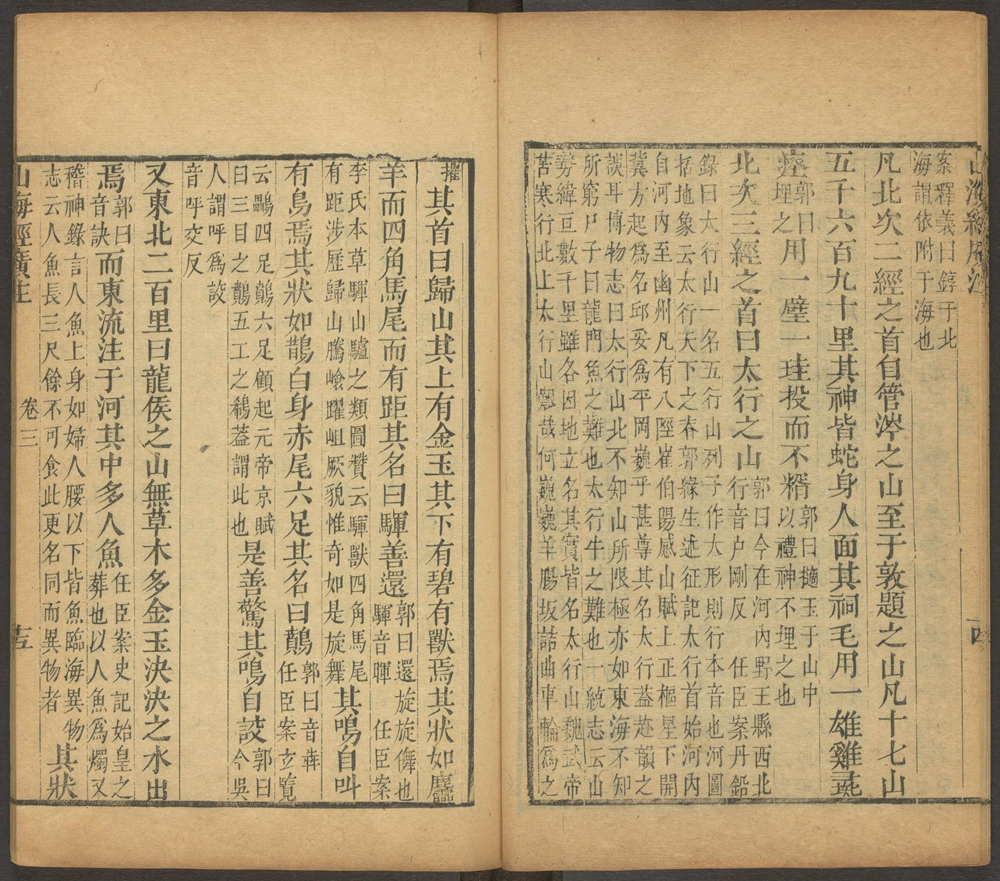 山海經廣注
案釋義曰錞于北
海謂依附于海也
凡北次二經之首自管涔之山至于敦題之山凡十七山
五千六百九十里其神皆蛇身人面其祠毛用一雄雞彘
瘞郭曰埋之用一璧一珪投而不糈郭曰擿玉于山中以禮神不埋之也
北次三經之首曰太行之山郭曰今在河內野王縣西北行音戶剛反 任臣案丹鉛
錄曰太行山一名五行山列子作大形則行本音也河圖
括地象云太行天下之脊郭緣生述征記太行首始河內
自河內至幽州凡有八陘崔伯陽感山賦上正樞星下開
冀方起為名邱妥為平岡巍乎甚尊其名太行蓋趁韻之
談耳博物志曰太行山北不知山所限極亦如東海不知
所窮尸子曰龍門魚之難也太行牛之難也一統志云山
旁緯亘數千里雖各因地立名其實皆名太行山魏武帝
苦寒行北上太行山艱哉何巍巍羊腸坂詰曲車輪為之
摧其首曰歸山其上有金玉其下有碧有獸焉其狀如麢
羊而四角馬尾而有距其名曰䮝善還郭曰還旋旋儛也䮝音暉 任臣案
李氏本草䮝山驢之類圖贊云䮝獸四角馬尾
有距涉歷歸山騰嶮躍岨厥貌惟奇如是旋舞其鳴自叫
有鳥焉其狀如鵲白身赤尾六足其名曰鷾郭曰音犇任臣案玄覽
云鸓四足鷾六足顧起元帝京賦
曰三目之鷾五工之鵜葢謂此也是善驚其鳴自詨郭曰今吳
人謂呼為詨
音呼交反
又東北二百里曰龍侯之山無草木多金玉決決之水出
焉郭曰音訣而東流注于河其中多人魚任臣案史記始皇之葬也以人魚為燭又
稽神錄言人魚上身如婦人腰以下皆魚臨海異物
志云人魚長三尺餘不可食此更名同而異物者其狀
山海經廣注
卷三
十五